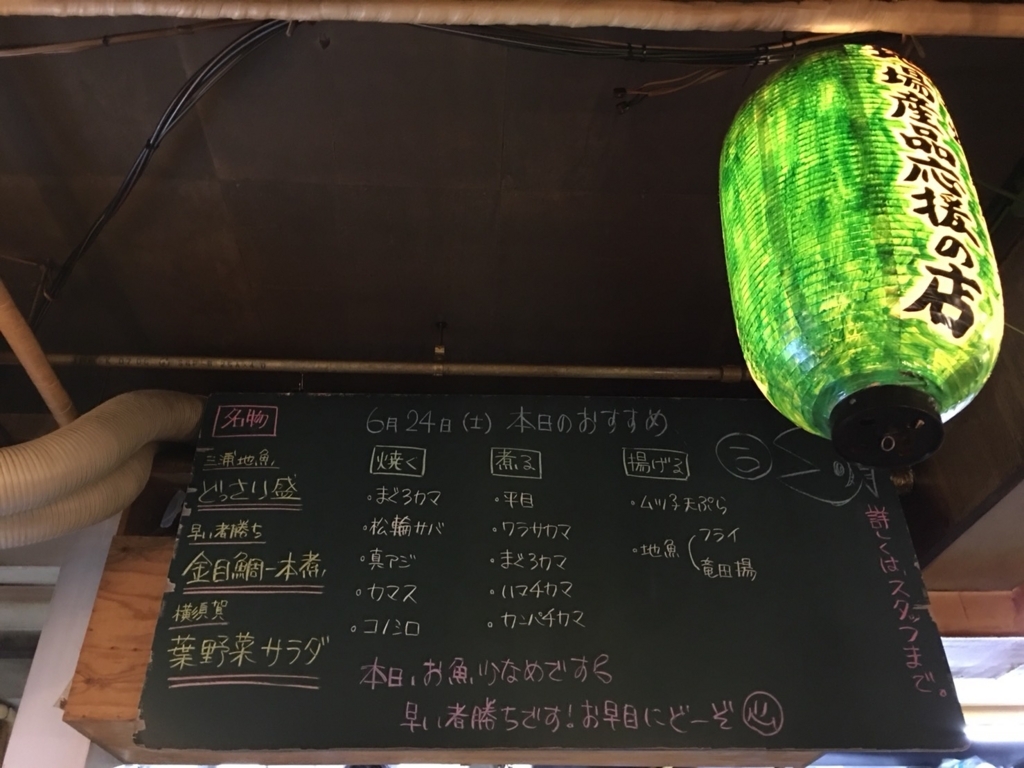 場産品応援の店
名物
三浦地魚
どっさり盛
早い者勝ち
金目鯛一本煮
横須賀
葉野菜サラダ
6月24日(土) 本日のおすすめ
焼く
・まぐろカマ
・松輪サバ
・真アジ
・カマス
・コノシロ
煮る
・平目
・ワラサカマ
・まぐろカマ
・ハマチカマ
・カンパチカマ
揚げる
・ムツ子天ぷら
・地魚
フライ
竜田揚
詳しくは、スタッフまで。
本日、お魚少なめです
早い者勝ちです!お早目にどーぞ